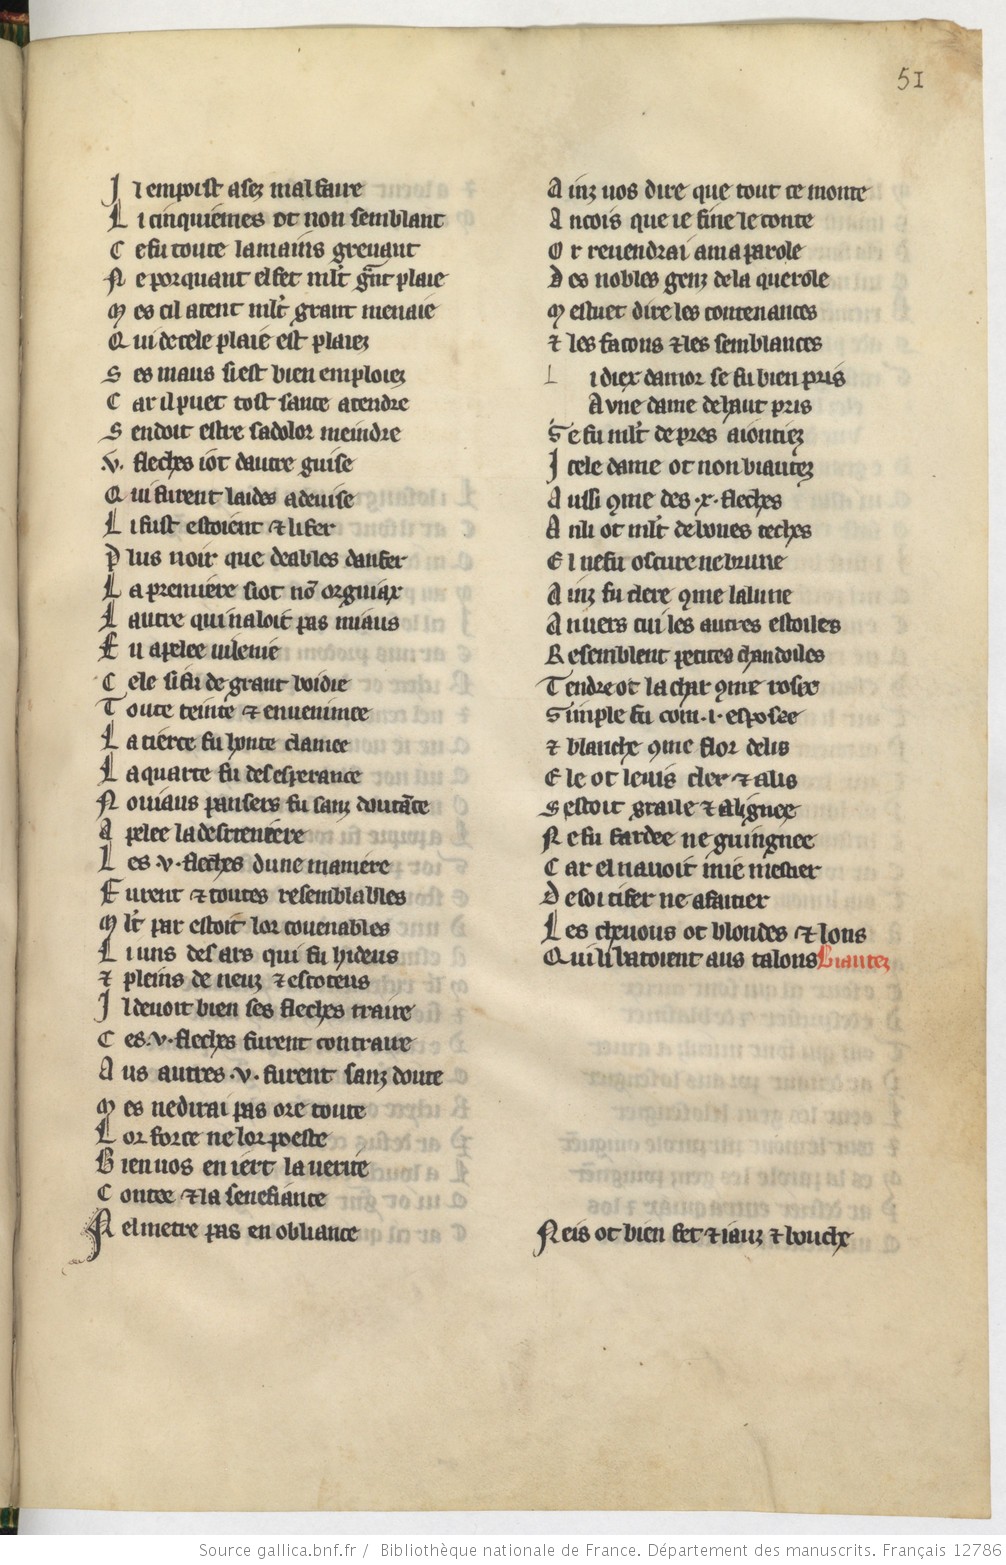 51
Il en poist asez mal faire
Li cinquiemes ot non semblant
Ce fu toute la mains grevant
Ne porquant el fet mlt gnt plaie
Mes cil atent mlt grant menaie
Qui de cele plaie est plaiez
Ses maus si est bien emploiez
Car il puet tost sante atendre
Sen doit estre sa dolor meindre
.v. fleches i ot dautre guise
Qui furent laides a devise
Li fust estoient et li fer
Plus noir que deables danfer
La premiere si ot no orguiax
Lautre qui na loit pas miaus
Fu apelee vilenie
Cele si fu de grant boidie
Toute teinte et envenimee
La tierce fu honte clamee
La quarte fu desesperance
Noviaus pansers fu sanz doutace
Apelee la derreniere
Les .v. fleches dune maniere
Furent et toutes resemblables
Mlt par estoit lor covenables
Li uns des ars qui fu hideus
et pleins de neuz et escoteus
Il devoit bien ses fleches traire
Ces .v. fleches furent contraire
Aus autres .v. furent sanz doute
Mes ne dirai pas ore toute
Lor force ne lor poeste
Bien vos en iert la verite
Contee et la senefiance
Nel metre pas en obliance
Ainz vos dire que tout ce monte
Ancois que ie fine le conte
Or revendrai a ma parole
Des nobles genz de la querole
Mestuet dire les contenances
et les facons et les semblances
Li diex damor se fu bien pris
A une dame de haut pris
Se fu mlt de pres aiontiez
Icele dame ot non biautez
Aussi 9me des .x. fleches
An li ot mlt de bones teches
El ne fu oscure ne brune
Ainz fu clere 9me la lune
Anvers cui les autres estoiles
Resemblent petites chandoiles
Tendre ot la char 9me rosee
Simple fu com .i. esposee
et blanche 9me flor de lis
Ele ot le vis cler et alis
Sestoit graile et alignee
Ne fu fardee ne guingnee
Car el navoit mie mestier
De soi tifer ne afaitier
Les chevous ot blondes et lons
Qui li batoient aus talons Biautez
Neis ot bien fet et iauz et bouche
Source gallica.bnf.fr / Bibliothèque nationale de France. Département des manuscrits. Français 12786